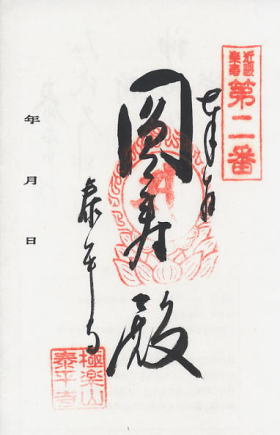 近畿
楽寿
第二番
奉拝
圓寿殿
泰平寺
年 月 日
極楽山
泰平寺